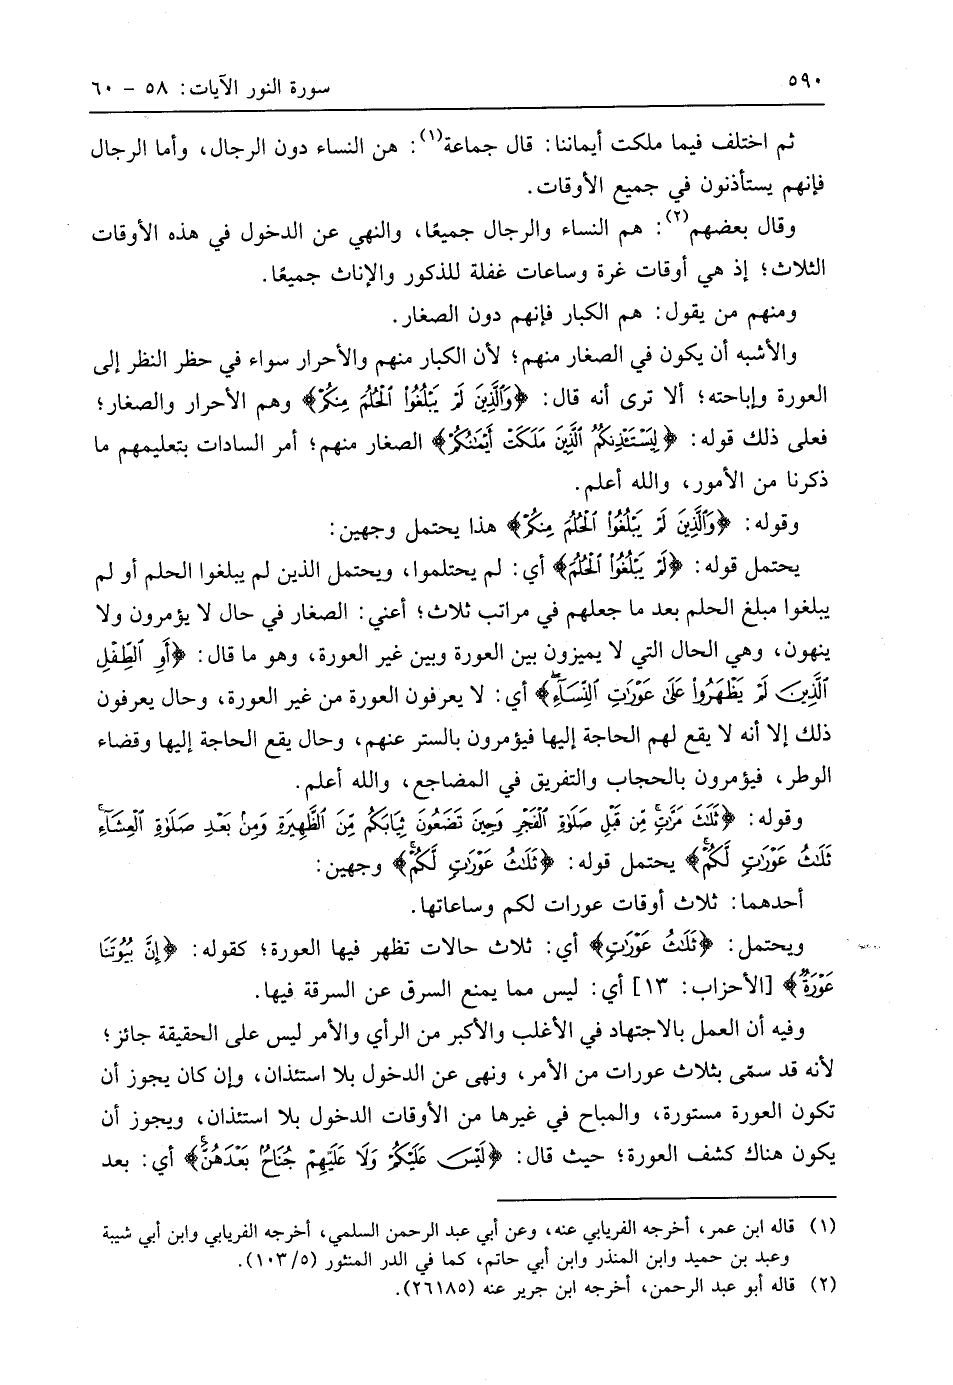 ٥٩٠ سورة النور الآيات: ٥٨ - ٦٠
ثم اختلف فيما ملكت أيماننا: قال جماعة(١): هن النساء دون الرجال، وأما الرجال
فإنهم يستأذنون في جميع الأوقات.
وقال بعضهم(٢): هم النساء والرجال جميعًا، والنهي عن الدخول في هذه الأوقات
الثلاث؛ إذ هي أوقات غرة وساعات غفلة للذكور والإناث جميعًا.
ومنهم من يقول: هم الكبار فإنهم دون الصغار.
والأشبه أن يكون في الصغار منهم؛ لأن الكبار منهم والأحرار سواء في حظر النظر إلى
العورة وإباحته؛ ألا ترى أنه قال: ﴿وَالَّذِينَ لَمْ يَبْلُغُوا الْحُلُمَ مِنكُمْ﴾ وهم الأحرار والصغار؛
فعلى ذلك قوله: ﴿لِيَسْتَئْذِنكُمُ الَّذِينَ مَلَكَتْ أَيْمَٰنُكُمْ﴾ الصغار منهم؛ أمر السادات بتعليمهم ما
ذكرنا من الأمور، والله أعلم.
وقوله: ﴿وَالَّذِينَ لَمْ يَبْلُغُوا الْحُلُمَ مِنكُمْ﴾ هذا يحتمل وجهين:
يحتمل قوله: ﴿لَمْ يَبْلُغُوا الْحُلُمَ﴾ أي: لم يحتلموا، ويحتمل الذين لم يبلغوا الحلم أو لم
يبلغوا مبلغ الحلم بعد ما جعلهم في مراتب ثلاث؛ أعني: الصغار في حال لا يؤمرون ولا
ينهون، وهي الحال التي لا يميزون بين العورة وبين غير العورة، وهو ما قال: ﴿أَوِ الطِّفْلِ
الَّذِينَ لَمْ يَظْهَرُوا عَلَىٰ عَوْرَٰتِ النِّسَآءِ﴾ أي: لا يعرفون العورة من غير العورة، وحال يعرفون
ذلك إلا أنه لا يقع لهم الحاجة إليها فيؤمرون بالستر عنهم، وحال يقع الحاجة إليها وقضاء
الوطر، فيؤمرون بالحجاب والتفريق في المضاجع، والله أعلم.
وقوله: ﴿ثَلَٰثَ مَرَّٰتٍ مِّن قَبْلِ صَلَوٰةِ الْفَجْرِ وَحِينَ تَضَعُونَ ثِيَابَكُم مِّنَ الظَّهِيرَةِ وَمِنۢ بَعْدِ صَلَوٰةِ الْعِشَآءِ
ثَلَٰثُ عَوْرَٰتٍ لَّكُمْ﴾ يحتمل قوله: ﴿ثَلَٰثُ عَوْرَٰتٍ لَّكُمْ﴾ وجهين:
أحدهما: ثلاث أوقات عورات لكم وساعاتها.
ويحتمل: ﴿ثَلَٰثُ عَوْرَٰتٍ﴾ أي: ثلاث حالات تظهر فيها العورة؛ كقوله: ﴿إِنَّ بُيُوتَنَا
عَوْرَةٌ﴾ [الأحزاب: ١٣] أي: ليس مما يمنع السرق عن السرقة فيها.
وفيه أن العمل بالاجتهاد في الأغلب والأكبر من الرأي والأمر ليس على الحقيقة جائز؛
لأنه قد سمّى بثلاث عورات من الأمر، ونهى عن الدخول بلا استئذان، وإن كان يجوز أن
تكون العورة مستورة، والمباح في غيرها من الأوقات الدخول بلا استئذان، ويجوز أن
يكون هناك كشف العورة؛ حيث قال: ﴿لَيْسَ عَلَيْكُمْ وَلَا عَلَيْهِمْ جُنَاحٌ بَعْدَهُنَّ﴾ أي: بعد
(١) قاله ابن عمر، أخرجه الفريابي عنه، وعن أبي عبد الرحمن السلمي، أخرجه الفريابي وابن أبي شيبة
وعبد بن حميد وابن المنذر وابن أبي حاتم، كما في الدر المنثور (١٠٣/٥).
(٢) قاله أبو عبد الرحمن، أخرجه ابن جرير عنه (٢٦١٨٥).